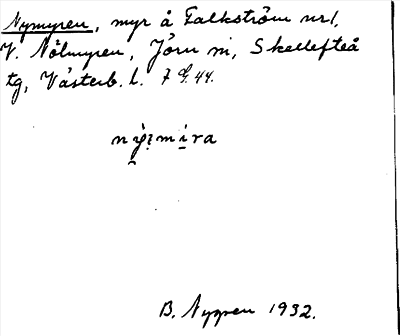 Nymyren, myr å Falkström nr 1,
V. Nölmyren, Jörn sn, Skellefteå
tg, Västerb. l. 7 G. 44.
nỳi̯mi̯ra
B. Nygren 1932.